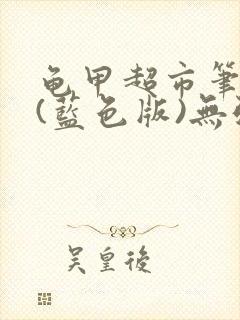 龟甲超市筆
(藍色版)無
吴皇後